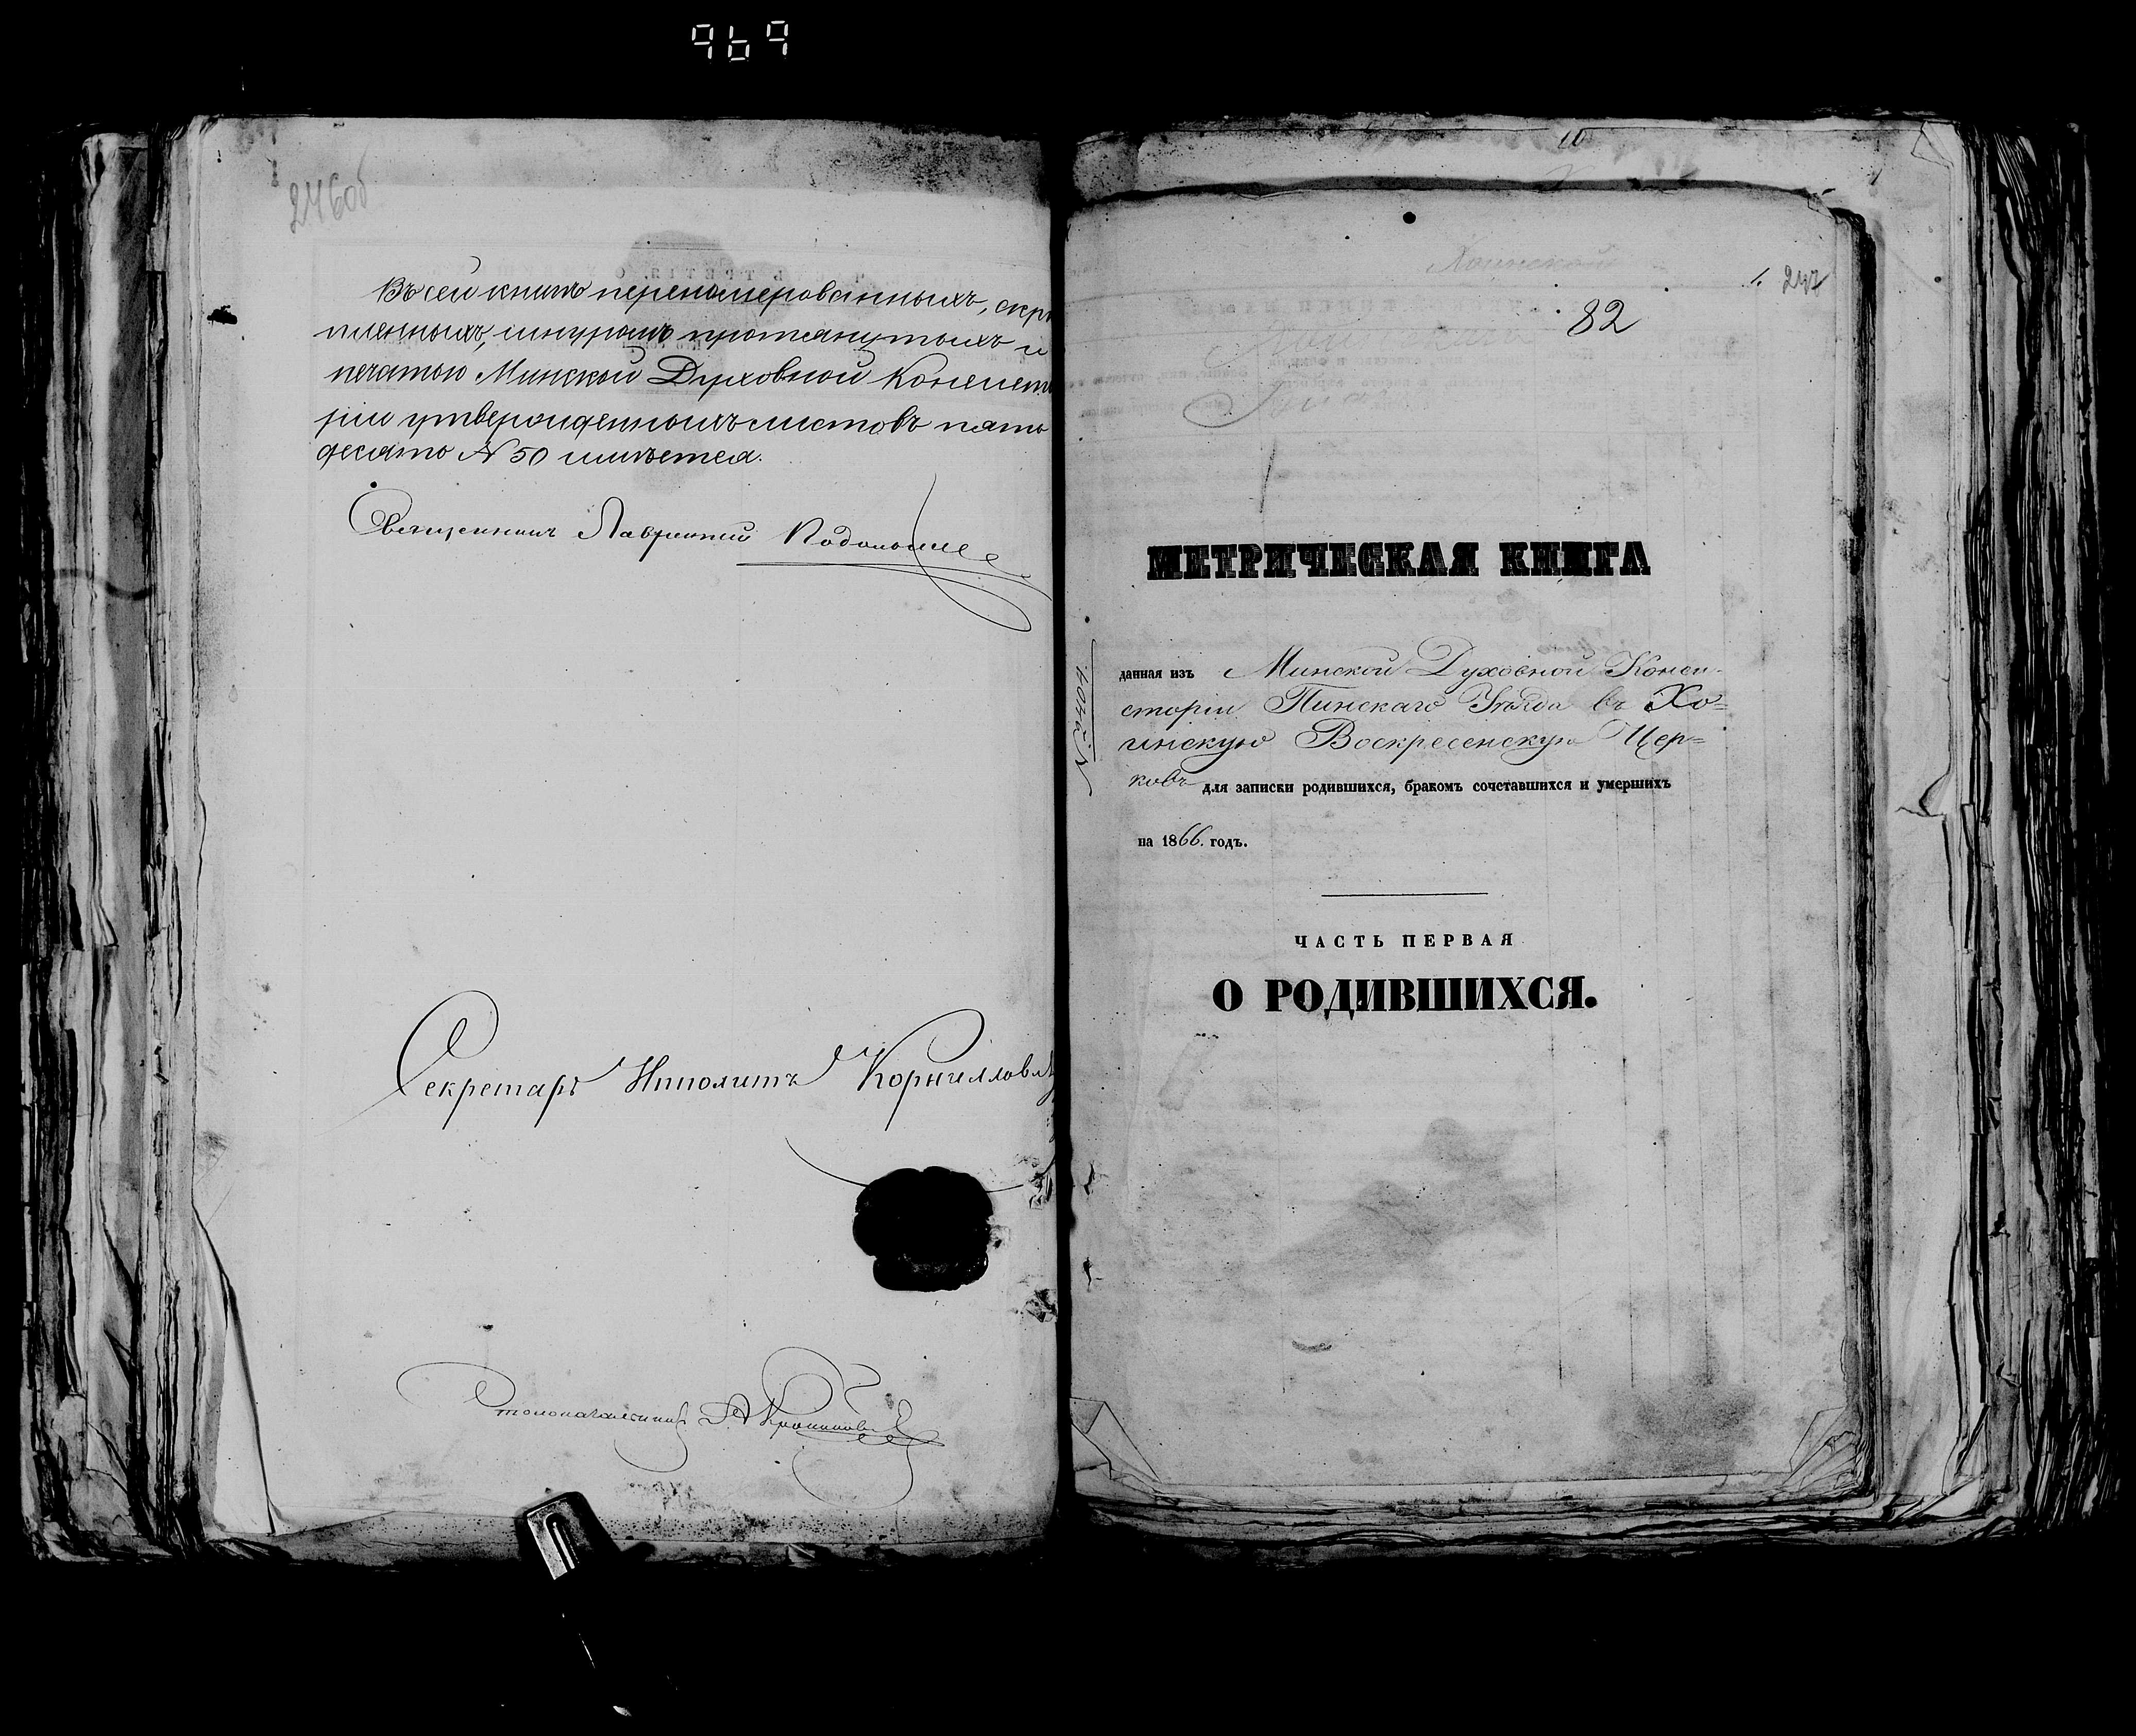 969
246об
Въ сей книгѣ перенумерованныхъ, скрѣ
пленныхъ, шнуромъ протянутыхъ и
печатью Минской Духовной Консисто
ріи утвержденныхъ листовъ пять
десятъ № 50 имѣется.
Священникъ Лаврентій
Секретарь Ипполитъ
Столоначальникъ
10
Хоинской
1. 247
82
МЕТРИЧЕСКАЯ КНИГА
данная изъ Минской Духовной Конси-
сторіи Пинскаго Уѣзда въ Хо=
инскую Воскресенскую Цер=
ковь для записки родившихся, бракомъ сочетавшихся и умершихъ
на 1866. годъ.
ЧАСТЬ ПЕРВАЯ
О РОДИВШИХСЯ.